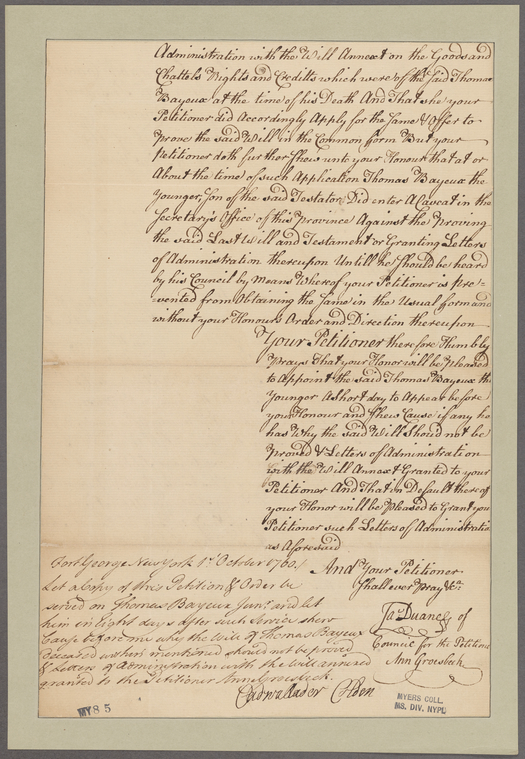 Administration with the Will Annext on the Goods and
Chattels Rights and Creditts which were of the said Thomas
Bayeux at the time of his Death And That she your
Petitioner did Accordingly Apply for the same & Offer to
prove the said Will in the Common form But your
Petitioner doth further Shew unto your Honour that at or
About the time of such Application Thomas Bayeux the
Younger, Son of the said Testator, Did enter A Caveat in the
Secretarys Office of this Province Against the Proving
the said Last Will and Testament or Granting Letters
of Administration thereupon Untill he Should be heard
by his Council by Means Whereof your Petitioner is pre=
vented from Obtaining the same in the Usual form and
without your Honours Order and Direction thereupon
Your Petitioner therefore Humbly
Prays That your Honor will be pleased
to Appoint the said Thomas Bayeux the
Younger A short day to Appear before
your Honour and Shew Cause if any he
has Why the said Will Should not be
Proved & Letters of Administration
with the Will Annext Granted to your
Petitioner And That in Default thereof
your Honor will be pleased to Grant your
Petitioner such Letters of Administratio
as Aforesaid
And Your Petitioner
Shall ever Pray &c
Ja Duane of
Council for the Petitione
Ann Groesbeck
Fort George New York 1st October 1760.
Let a Copy of this Petition & Order be
served on Thomas Bayeux Junr and let
him in Eight days after such Service shew
Cause before me why the Will of Thomas Bayeux
deceased within mentioned should not be proved
& Letters of Administration with the Will annexed
granted to the Petitioner Ann Groesbeck.
Cadwallader Colden
MY85
MYERS COLL.
MS. DIV. NYPL